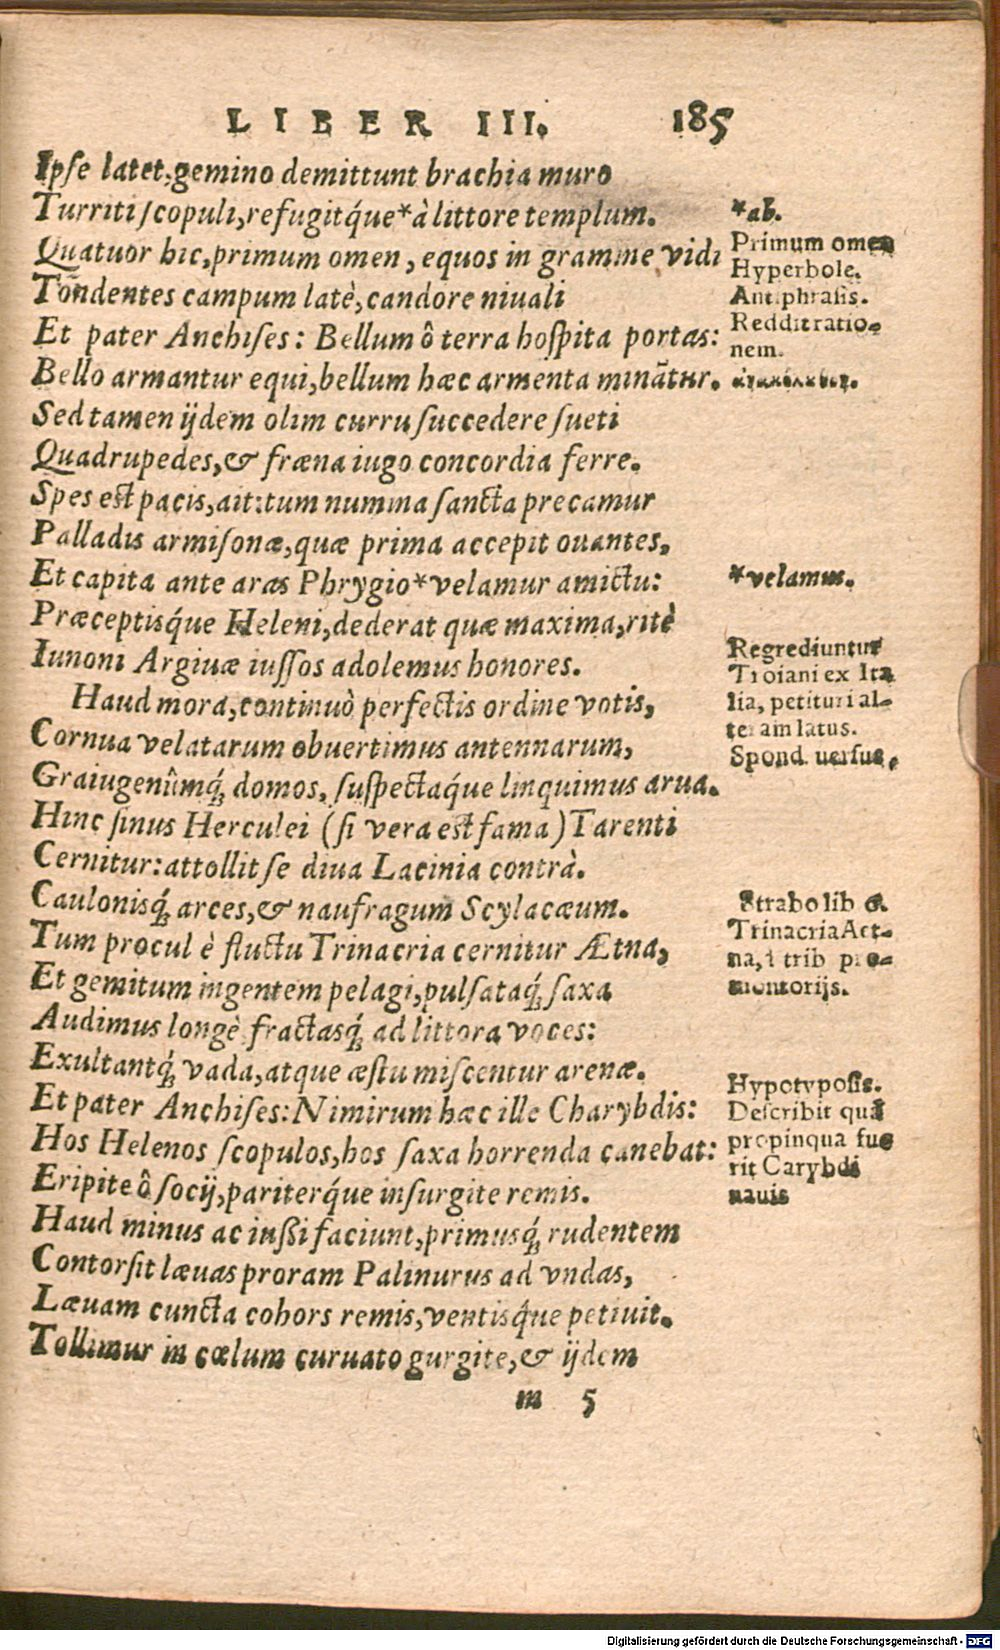 LIBER III. 185
Ipse latet, gemino demittunt brachia muro
Turriti scopuli, refugitq́ue * à littore templum.
*ab.
Quatuor hic, primum omen, equos in gramine vidi
Primum omen
Hyperbole.
Tondentes campum latè, candore niuali
Antiphrasis.
Et pater Anchises: Bellum ô terra hospita portas:
Reddit ratio-
nem.
Bello armantur equi, bellum hæc armenta minãtur.
Sed tamen ijdem olim curru succedere sueti
Quadrupedes, & fræna iugo concordia ferre.
Spes est pacis, ait: tum numina sancta precamur
Palladis armisonæ, quæ prima accepit ouantes,
Et capita ante aras Phrygio * velamur amictu:
*velamus.
Præceptisq́ue Heleni, dederat quæ maxima, ritè
Iunoni Argiuæ iussos adolemus honores.
Regrediuntur
Troiani ex Ita
Haud mora, continuò perfectis ordine votis,
lia, petituri al-
teram latus.
Cornua velatarum obuertimus antennarum,
Spond. uersus.
Graiugenûmq́; domos, suspectaq́ue linquimus arua.
Hinc sinus Herculei (si vera est fama) Tarenti
Cernitur: attollit se diua Lacinia contrà.
Caulonisq́; arces, & naufragum Scylacæum.
Strabo lib 6.
Tum procul è fluctu Trinacria cernitur Ætna,
Trinacria Aet-
Et gemitum ingentem pelagi, pulsataq́; saxa
na, à trib pro-
montorijs.
Audimus longè, fractasq́; ad littora voces:
Exultantq́; vada, atque æstu miscentur arenæ.
Hypotyposis.
Et pater Anchises: Nimirum hæc ille Charybdis:
Describit quã
Hos Helenos scopulos, hos saxa horrenda canebat:
propinqua fue
rit Carybdi
Eripite ô socij, pariterq́ue insurgite remis.
nauis
Haud minus ac iussi faciunt, primusq́; rudentem
Contorsit læuas proram Palinurus ad vndas,
Læuam cuncta cohors remis, ventisq́ue petiuit.
Tollimur in cœlum curuato gurgite, & ijdem
m 5
Digitalisierung gefördert durch die Deutsche Forschungsgemeinschaft - DFG